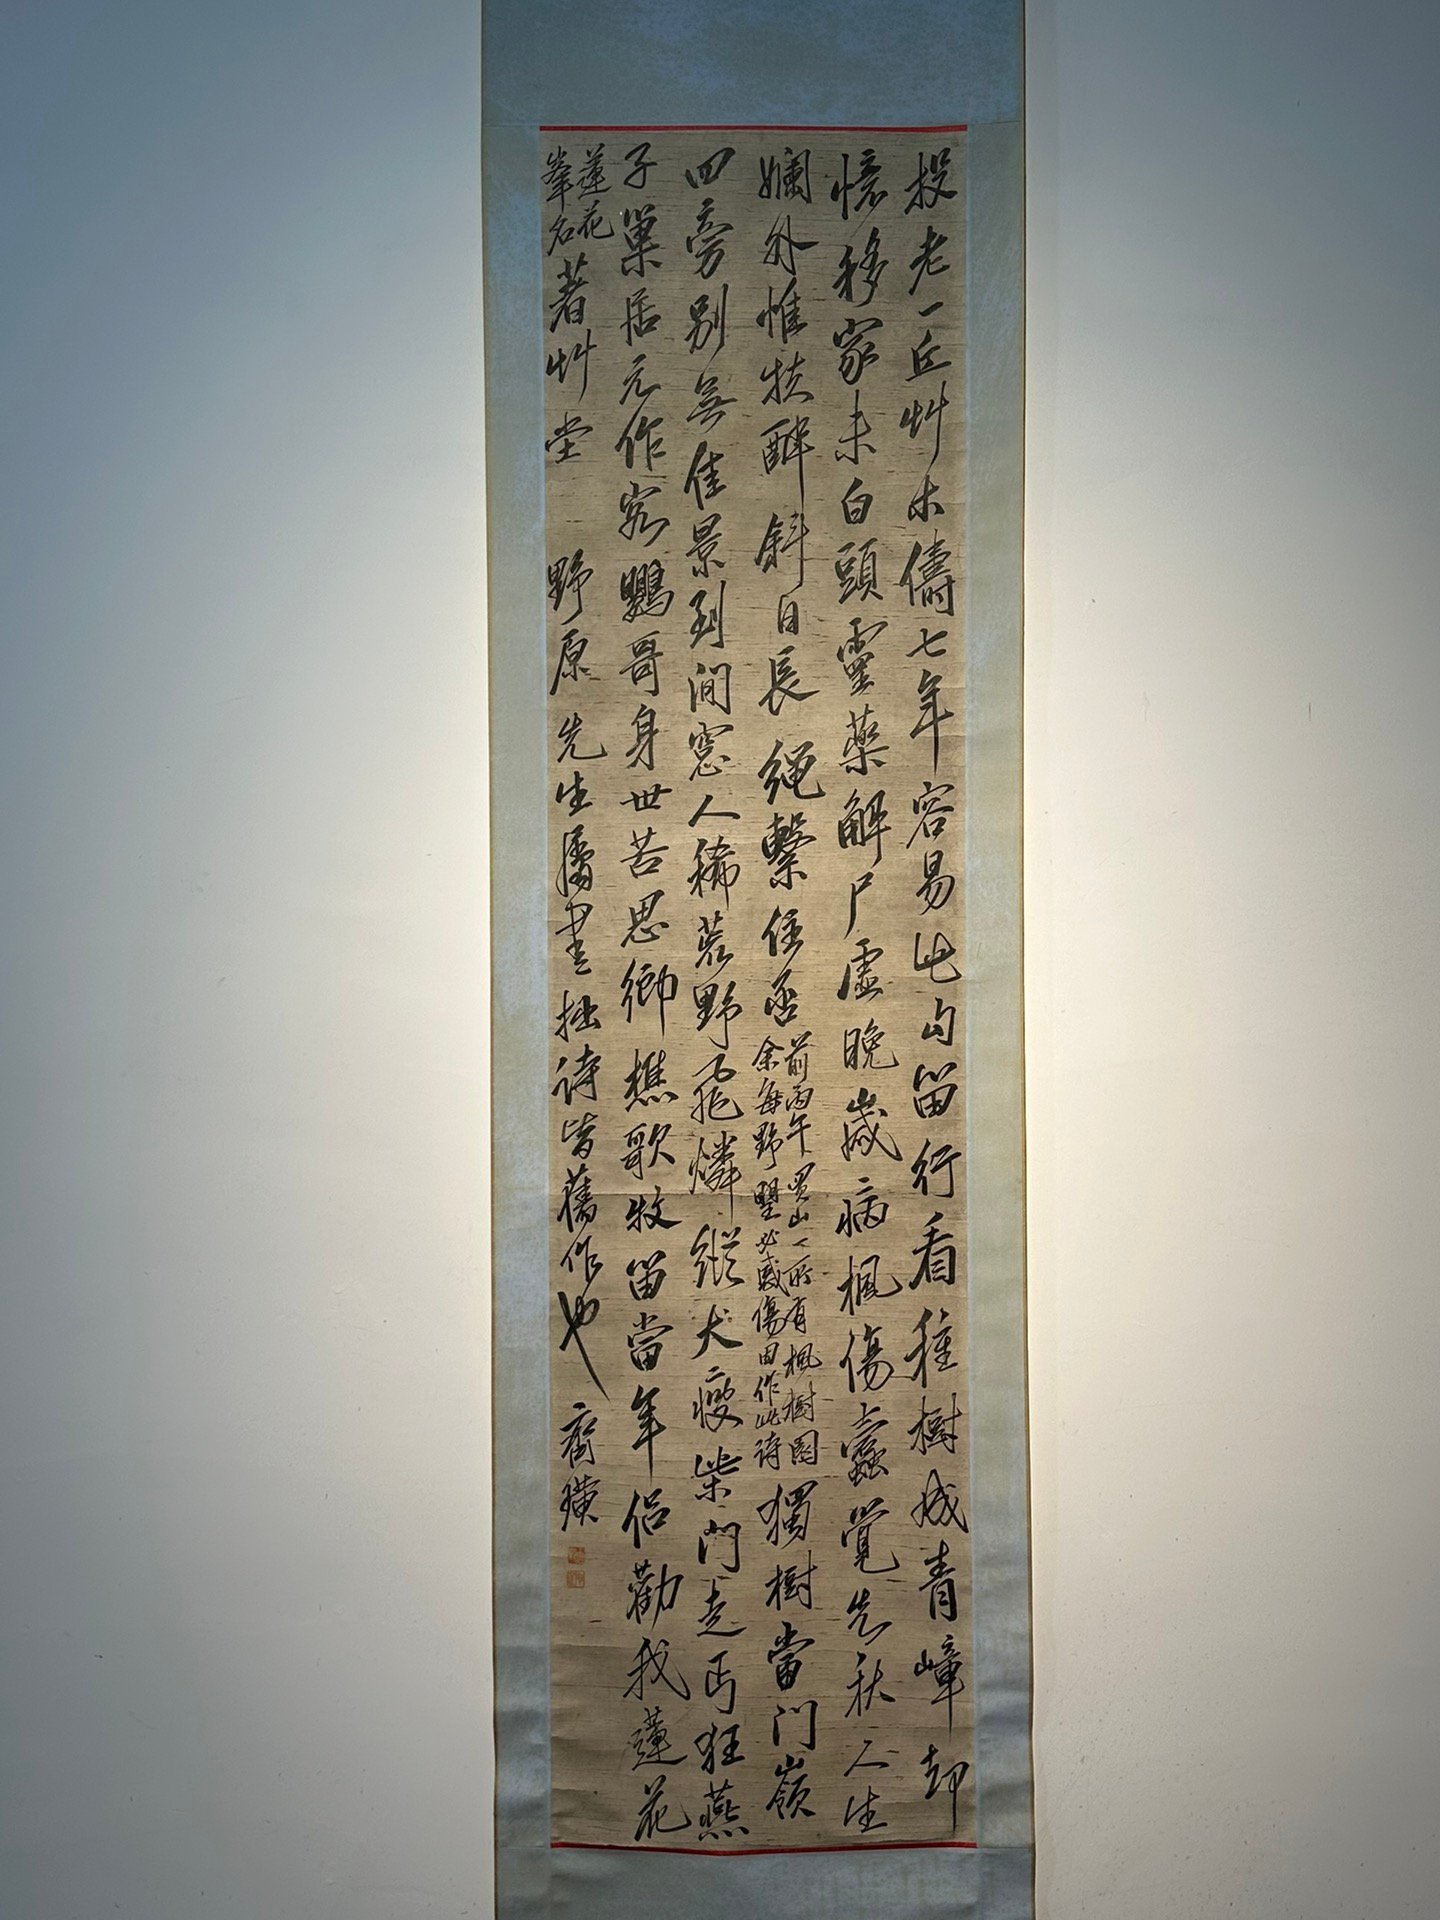 投老一丘艸木儔七年容易此句留行看種樹成青嶂却
憶移家未白頭靈藥解尸虛晚歲病楓傷蠹覺先秋人生
斕外惟扶醉斜日長繩繫住否
前丙午買山一所有楓樹圍
余每野望必感傷因作此詩
獨樹當門嶺
四旁別無佳景到澗窓人稀荒野飛燐縱犬瘦柴門走丐狂燕
子巢居元作客鸚哥身世苦思鄉樵歌牧笛當年侣勸我蓮花
蓮花
峯名
著艸堂 野原先生屬書拙詩皆舊作也 齊璜